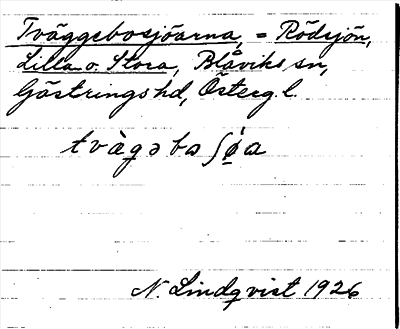 Tväggebosjöarna, = Rödsjön,
Lilla o. Stora, Blåviks sn,
Göstrings hd, Österg. l.
tvàgəboʃö́a
N. Lindqvist 1926